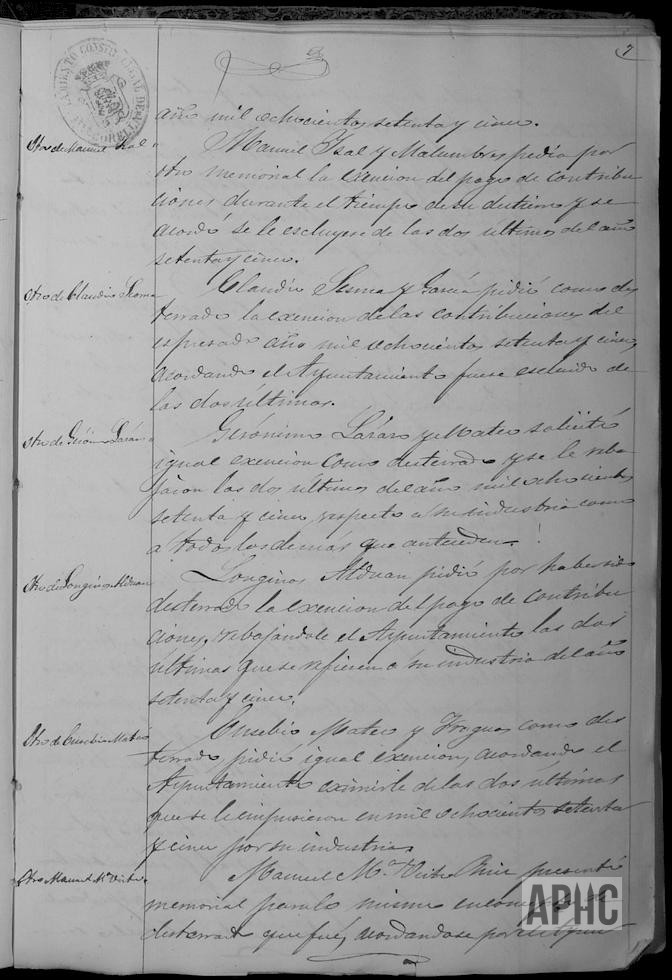 7
año mil ochocientos setenta y cinco.
Otro de Manuel Ysal
Manuel Ysal y Malumbres pedia por
otro memorial la exencion del pago de contribu
ciones durante el tiempo de su destierro y se
acordó se le escluyese de las dos ultimas del año
setenta y cinco.
Otro de Claudio Sesma
Claudio Sesma y García pidió como des
terrado la exencion de las contribuciones del
espresado año mil ochocientos setenta y cinco,
acordando el Ayuntamiento fuese escluido de
las dos últimas.
Otro de Gerónimo Lázaro
Gerónimo Lázaro y Mateo solicitó
igual exencion como desterrado y se le reba
jaron las dos últimas del año mil ochocientos
setenta y cinco, respecto á su industria como
a todos los demás que anteceden.
Otro de Longinos Alduan
Longinos Alduan pidió por haber sido
desterrado la exencion del pago de contribu
ciones, rebajándole el Ayuntamiento las dos
últimas que se refieren a su industria del año
setenta y cinco.
Otro de Eusebio Mateo
Eusebio Mateo y como des
terrado pidió igual exencion, acordando el
Ayuntamiento eximirle de las dos últimas
que se le impusieron en mil ochocientos setenta
y cinco por su industria.
Otro Manuel Mª
Manuel Mª presentó
memorial para lo mismo en concepto de
desterrado que fué, acordandose por el Ayun
APHC